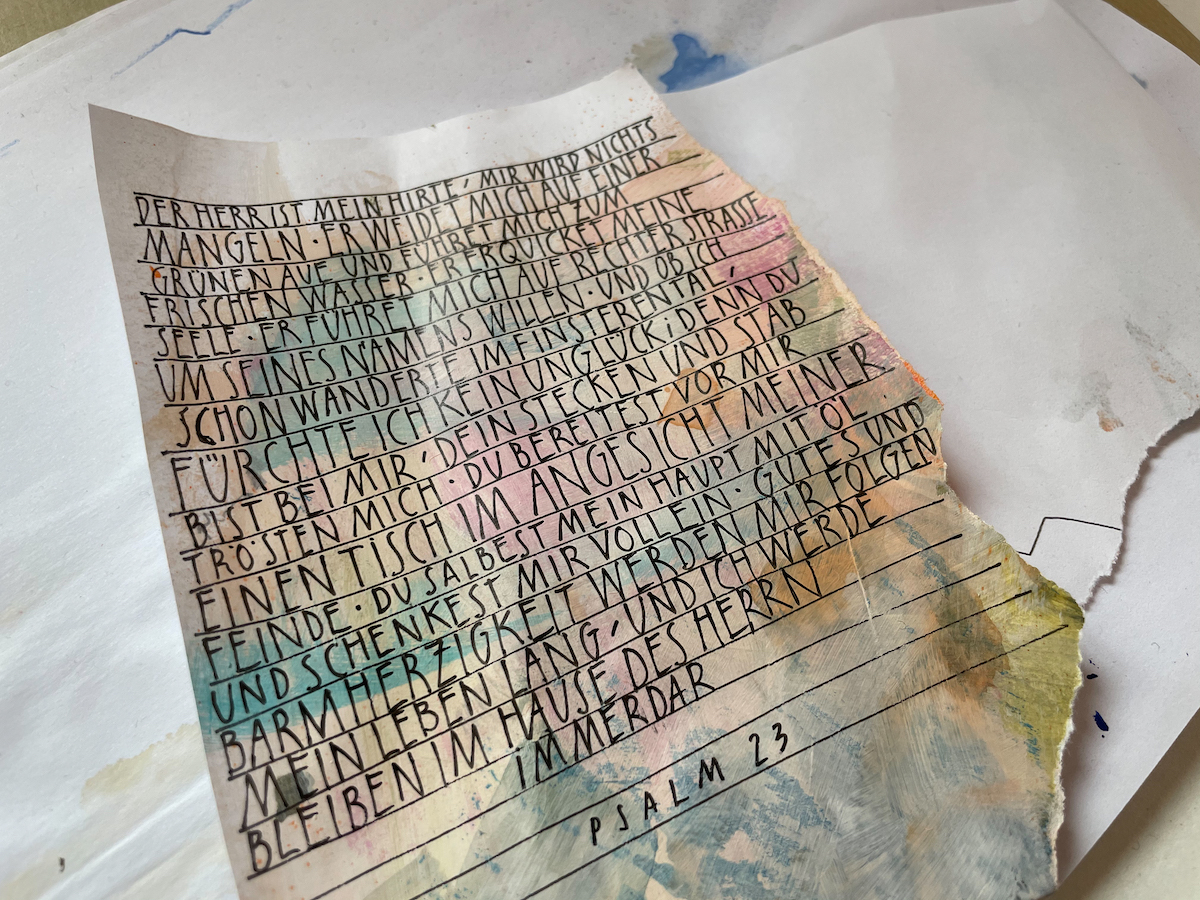 DER HERR IST MEIN HIRTE, MIR WIRD NICHTS
MANGELN · ER WEIDET MICH AUF EINER
GRÜNEN AUE UND FÜHRET MICH ZUM
FRISCHEN WASSER · ER ERQUICKET MEINE
SEELE · ER FÜHRET MICH AUF RECHTER STRASSE
UM SEINES NAMENS WILLEN · UND OB ICH
SCHON WANDERTE IM FINSTEREN TAL,
FÜRCHTE ICH KEIN UNGLÜCK; DENN DU
BIST BEI MIR, DEIN STECKEN UND STAB
TRÖSTEN MICH · DU BEREITEST VOR MIR
EINEN TISCH IM ANGESICHT MEINER
FEINDE · DU SALBEST MEIN HAUPT MIT ÖL ·
UND SCHENKEST MIR VOLL EIN · GUTES UND
BARMHERZIGKEIT WERDEN MIR FOLGEN
MEIN LEBEN LANG, UND ICH WERDE
BLEIBEN IM HAUSE DES HERRN
IMMERDAR
PSALM 23